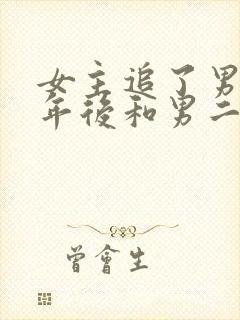 女主追了男
年後和男二
曾會生